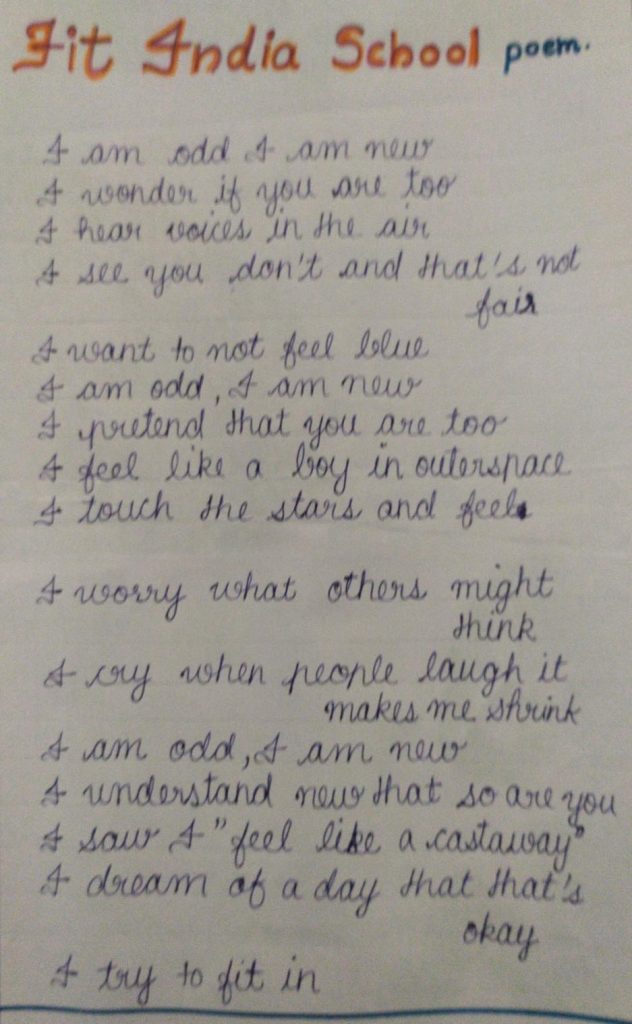 Fit India School poem.
I am odd I am new
I wonder if you are too
I hear voices in the air
I see you don't and that's not
fair
I want to not feel blue
I am odd, I am new
I pretend that you are too
I feel like a boy in outerspace
I touch the stars and feel
I worry what others might
think
I cry when people laugh it
makes me shrink
I am odd, I am new
I understand new that so are you
I saw I "feel like a castaway"
I dream of a day that that's
okay
I try to fit in